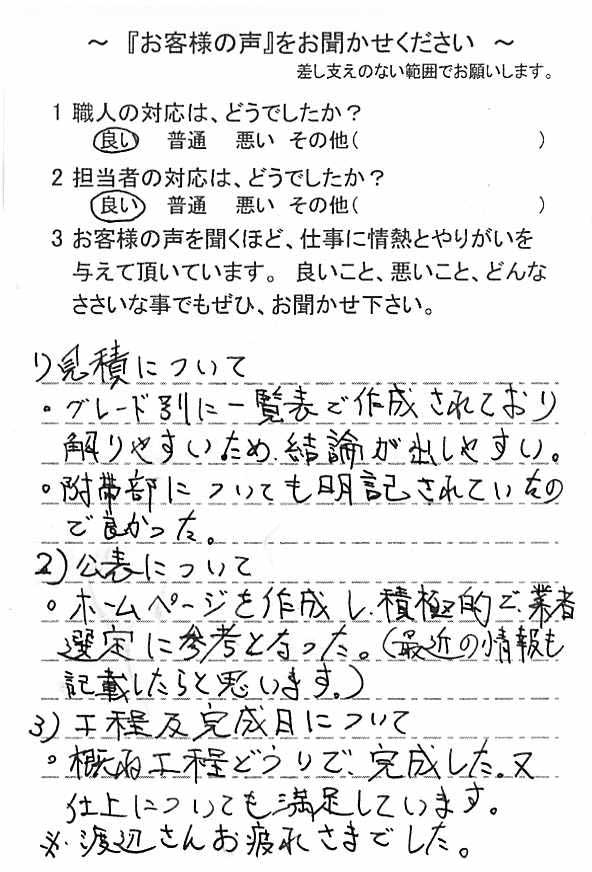 ～『お客様の声』をお聞かせください ～
差し支えのない範囲でお願いします。
1 職人の対応は、どうでしたか？
良い 普通 悪い その他( )
2 担当者の対応は、どうでしたか？
良い 普通 悪い その他( )
3 お客様の声を聞くほど、仕事に情熱とやりがいを
与えて頂いています。 良いこと、悪いこと、どんな
ささいな事でもぜひ、お聞かせ下さい。
1)見積について
・グレード別に一覧表で作成されており
解りやすいため、結論が出しやすい。
・附帯部についても明記されていたの
で良かった。
2)公表について
・ホームページを作成し、積極的で、業者
選定に参考となった。(最近の情報も
記載したらと思います。)
3)工程及完成日について
・概ね工程どうりで、完成した。又
仕上についても満足しています。
※.渡辺さんお疲れさまでした。